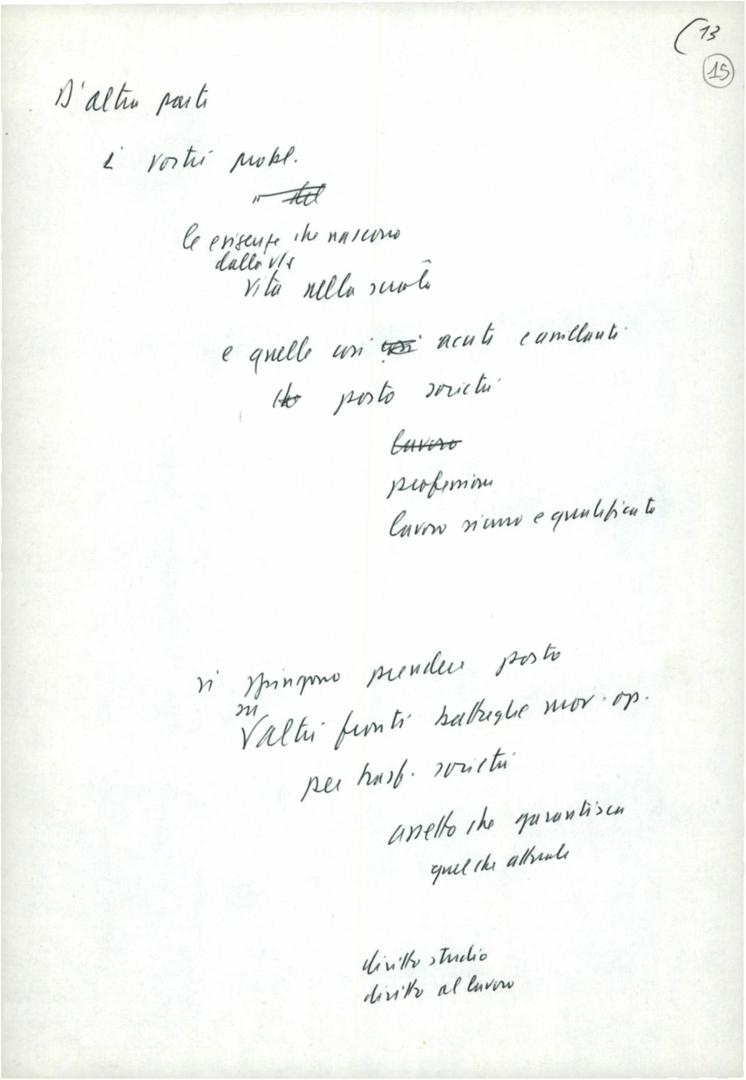 (13
15
D'altra parte
i vostri probl.
le esigenze che nascono
dalla vs
vita nella scuola
e quelle così acute e assillanti
posto società
lavoro
professione
lavoro sicuro e qualificato
vi spingono prendere posto
su
altri fronti battaglie mov. op.
per trasf. società
assetto che garantisca
quel che attuale
diritto studio
diritto al lavoro